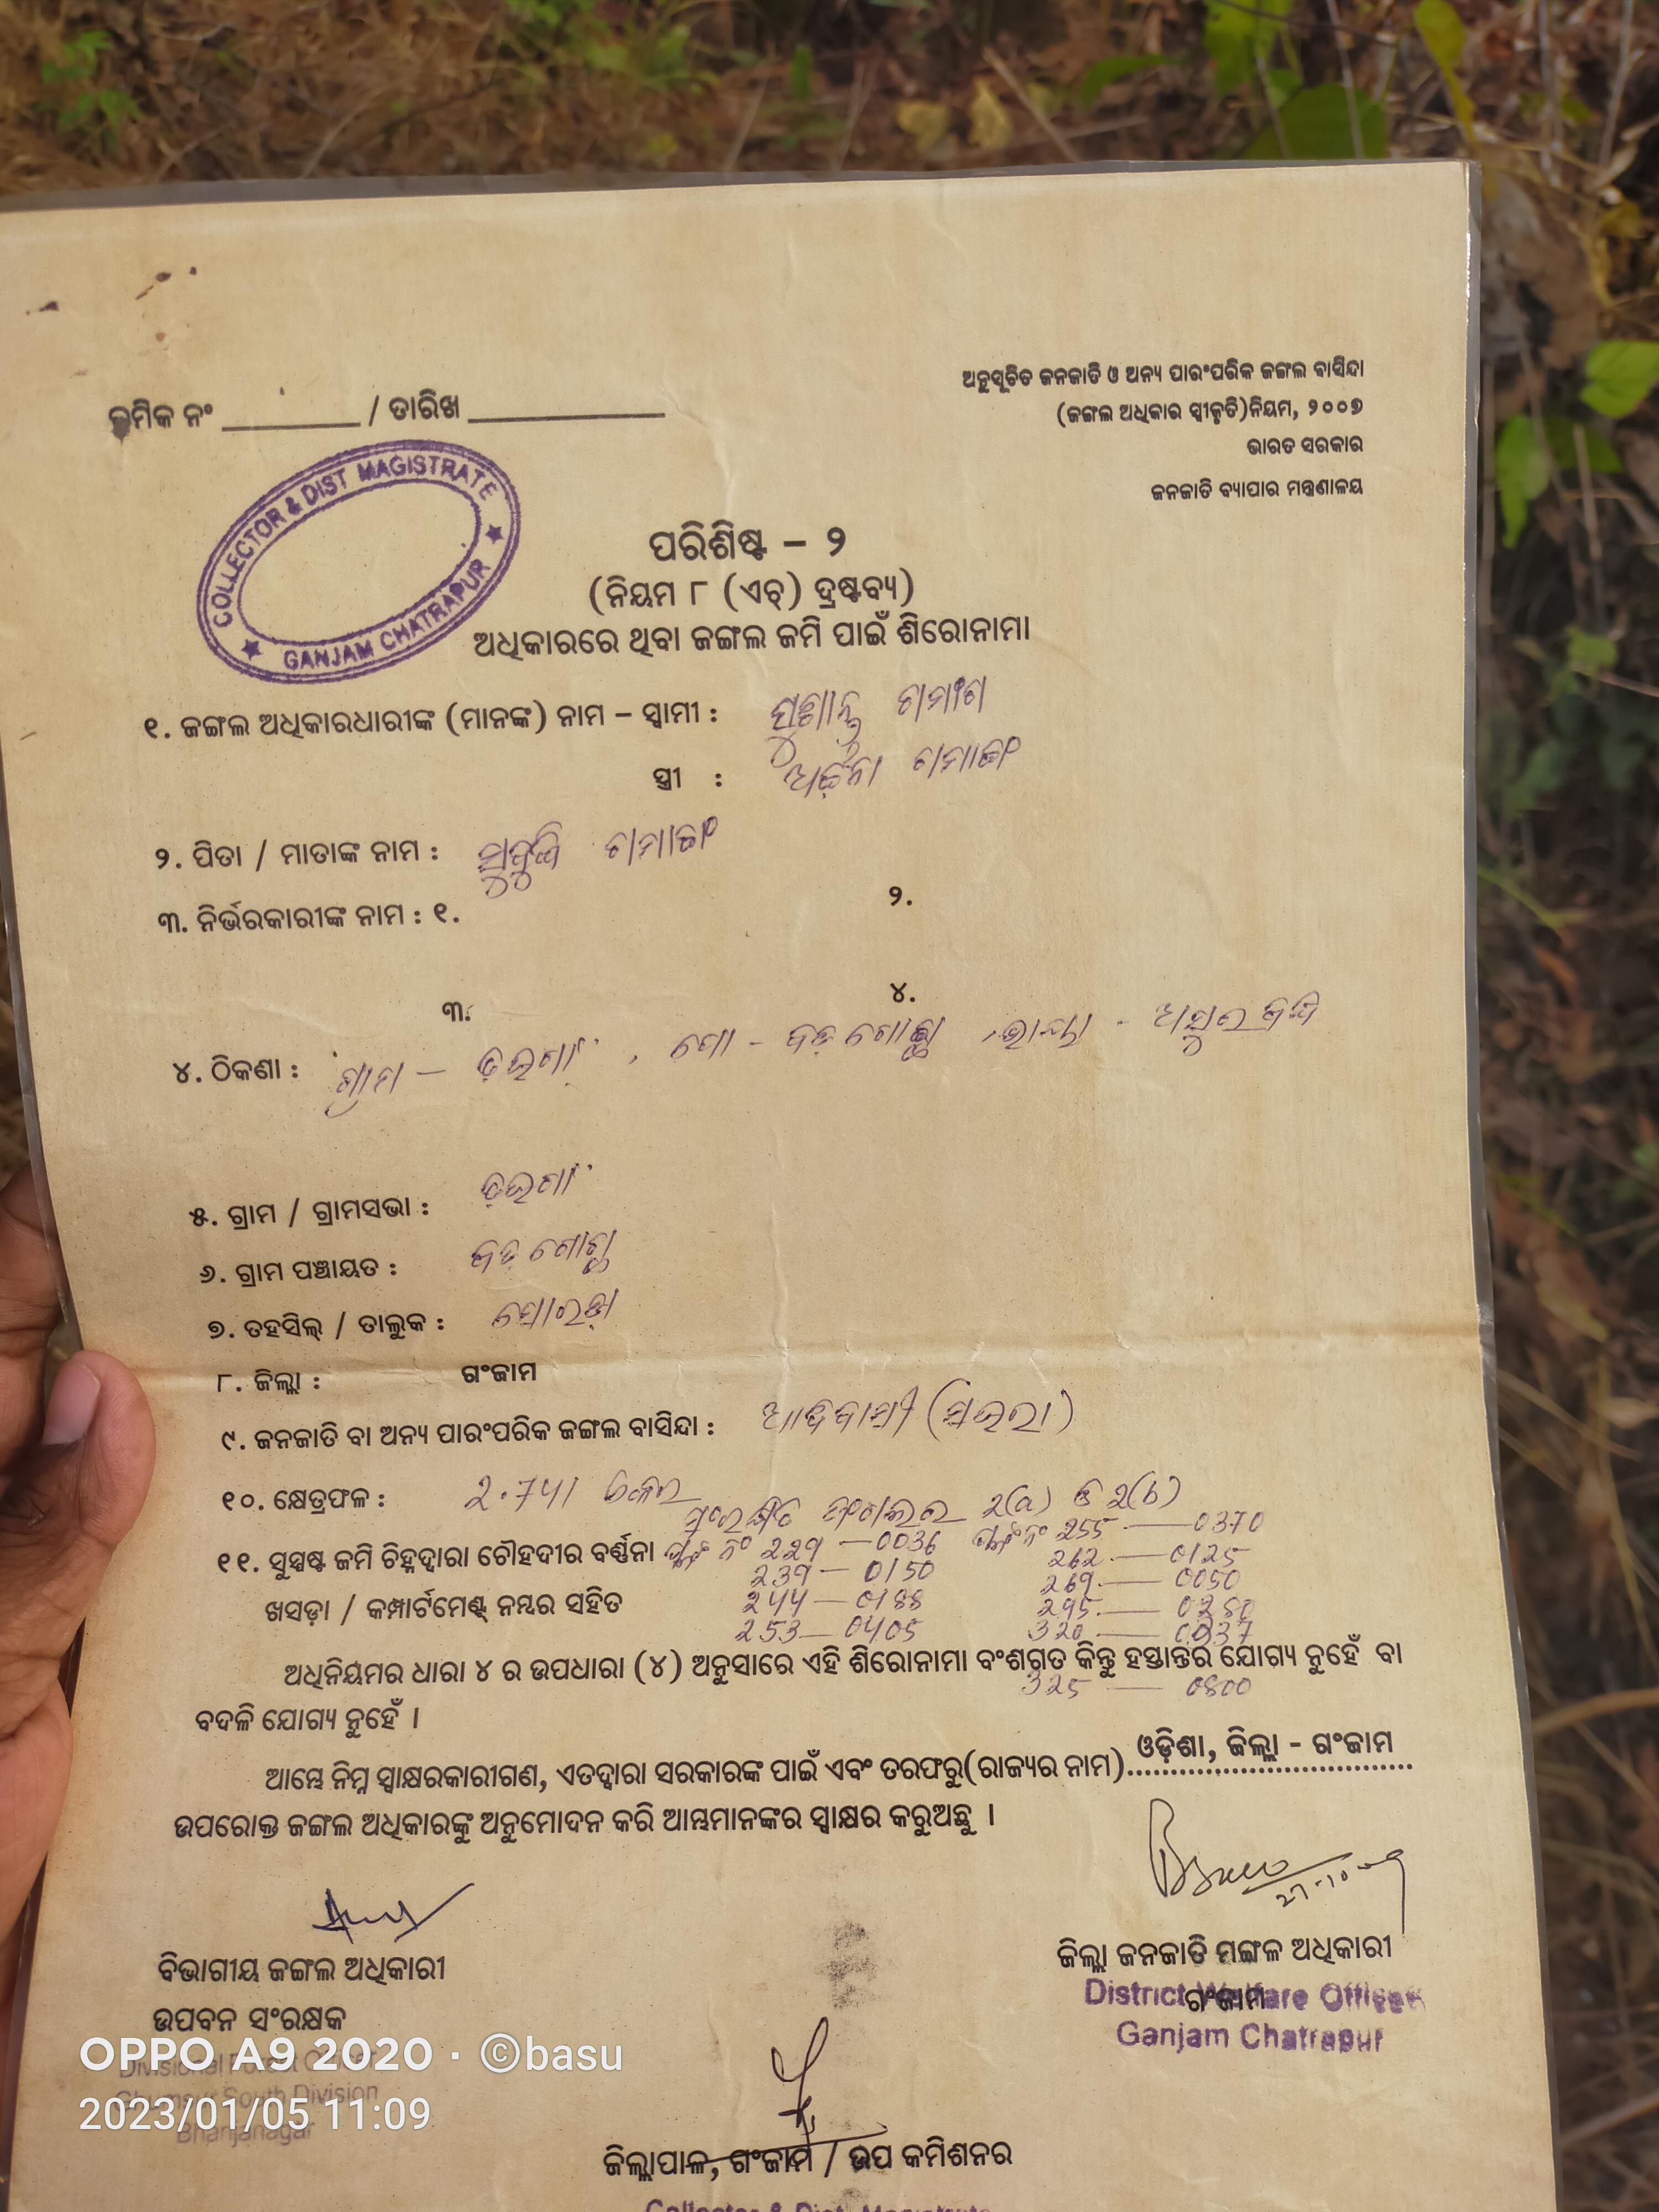 କ୍ରମିକ ନଂ / ତାରିଖ
ଅନୁସୂଚିତ ଜନଜାତି ଓ ଅନ୍ୟ ପାରଂପରିକ ଜଙ୍ଗଲ ବାସିନ୍ଦା
(ଜଙ୍ଗଲ ଅଧିକାର ସ୍ୱୀକୃତି)ନିୟମ, ୨୦୦୭
ଭାରତ ସରକାର
ଜନଜାତି ବ୍ୟାପାର ମନ୍ତ୍ରଣାଳୟ
COLLECTOR & DIST MAGISTRATE
GANJAM CHATRAPUR
ପରିଶିଷ୍ଟ – ୨
(ନିୟମ ୮ (ଏଚ୍) ଦ୍ରଷ୍ଟବ୍ୟ)
ଅଧିକାରରେ ଥିବା ଜଙ୍ଗଲ ଜମି ପାଇଁ ଶିରୋନାମା
୧. ଜଙ୍ଗଲ ଅଧିକାରଧାରୀଙ୍କ (ମାନଙ୍କ) ନାମ – ସ୍ୱାମୀ : ଗମାଂଗ
ସ୍ତ୍ରୀ : ଗମାଙ୍ଗ
୨. ପିତା / ମାତାଙ୍କ ନାମ : ଗମାଙ୍ଗ
୩. ନିର୍ଭରକାରୀଙ୍କ ନାମ : ୧. ୨.
୩. ୪.
୪. ଠିକଣା : ଗ୍ରାମ –
୫. ଗ୍ରାମ / ଗ୍ରାମସଭା :
୬. ଗ୍ରାମ ପଞ୍ଚାୟତ :
୭. ତହସିଲ୍ / ତାଲୁକ : ସୋରଡ଼ା
୮. ଜିଲ୍ଲା : ଗଂଜାମ
୯. ଜନଜାତି ବା ଅନ୍ୟ ପାରଂପରିକ ଜଙ୍ଗଲ ବାସିନ୍ଦା : ଆଦିବାସୀ (ସଉରା)
୧୦. କ୍ଷେତ୍ରଫଳ : 2.741 ଏକର
ସଂରକ୍ଷିତ ଜଂଗଲର 2(a) ଓ 2(b)
୧୧. ସୁସ୍ପଷ୍ଟ ଜମି ଚିହ୍ନଦ୍ୱାରା ଚୌହଦୀର ବର୍ଣ୍ଣନା ପ୍ଲଟ ନଂ 229 – 0036 ପ୍ଲଟ ନଂ 255 — 0370
239 – 0150 262 — 0125
ଖସଡ଼ା / କମ୍ପାର୍ଟମେଣ୍ଟ୍ ନମ୍ବର ସହିତ 244 – 0188 269 — 0050
253 – 0405 295 — 0280
320 — 0337
ଅଧିନିୟମର ଧାରା ୪ ର ଉପଧାରା (୪) ଅନୁସାରେ ଏହି ଶିରୋନାମା ବଂଶଗତ କିନ୍ତୁ ହସ୍ତାନ୍ତର ଯୋଗ୍ୟ ନୁହେଁ ବା
325 — 0800
ବଦଳି ଯୋଗ୍ୟ ନୁହେଁ ।
ଓଡ଼ିଶା, ଜିଲ୍ଲା - ଗଂଜାମ
ଆମ୍ଭେ ନିମ୍ନ ସ୍ୱାକ୍ଷରକାରୀଗଣ, ଏତଦ୍ୱାରା ସରକାରଙ୍କ ପାଇଁ ଏବଂ ତରଫରୁ(ରାଜ୍ୟର ନାମ)................................
ଉପରୋକ୍ତ ଜଙ୍ଗଲ ଅଧିକାରଙ୍କୁ ଅନୁମୋଦନ କରି ଆମ୍ଭମାନଙ୍କର ସ୍ୱାକ୍ଷର କରୁଅଛୁ ।
ବିଭାଗୀୟ ଜଙ୍ଗଲ ଅଧିକାରୀ
ଉପବନ ସଂରକ୍ଷକ
Divisional Forest Officer
Ghumsur South Division
Bhanjanagar
ଜିଲ୍ଲା ଜନଜାତି ମଙ୍ଗଳ ଅଧିକାରୀ
ଗଂଜାମ
District Welfare Officer
Ganjam Chatrapur
ଜିଲ୍ଲାପାଳ, ଗଂଜାମ / ଉପ କମିଶନର
Collector & Dist. Magistrate
OPPO A9 2020 · ©basu
2023/01/05 11:09